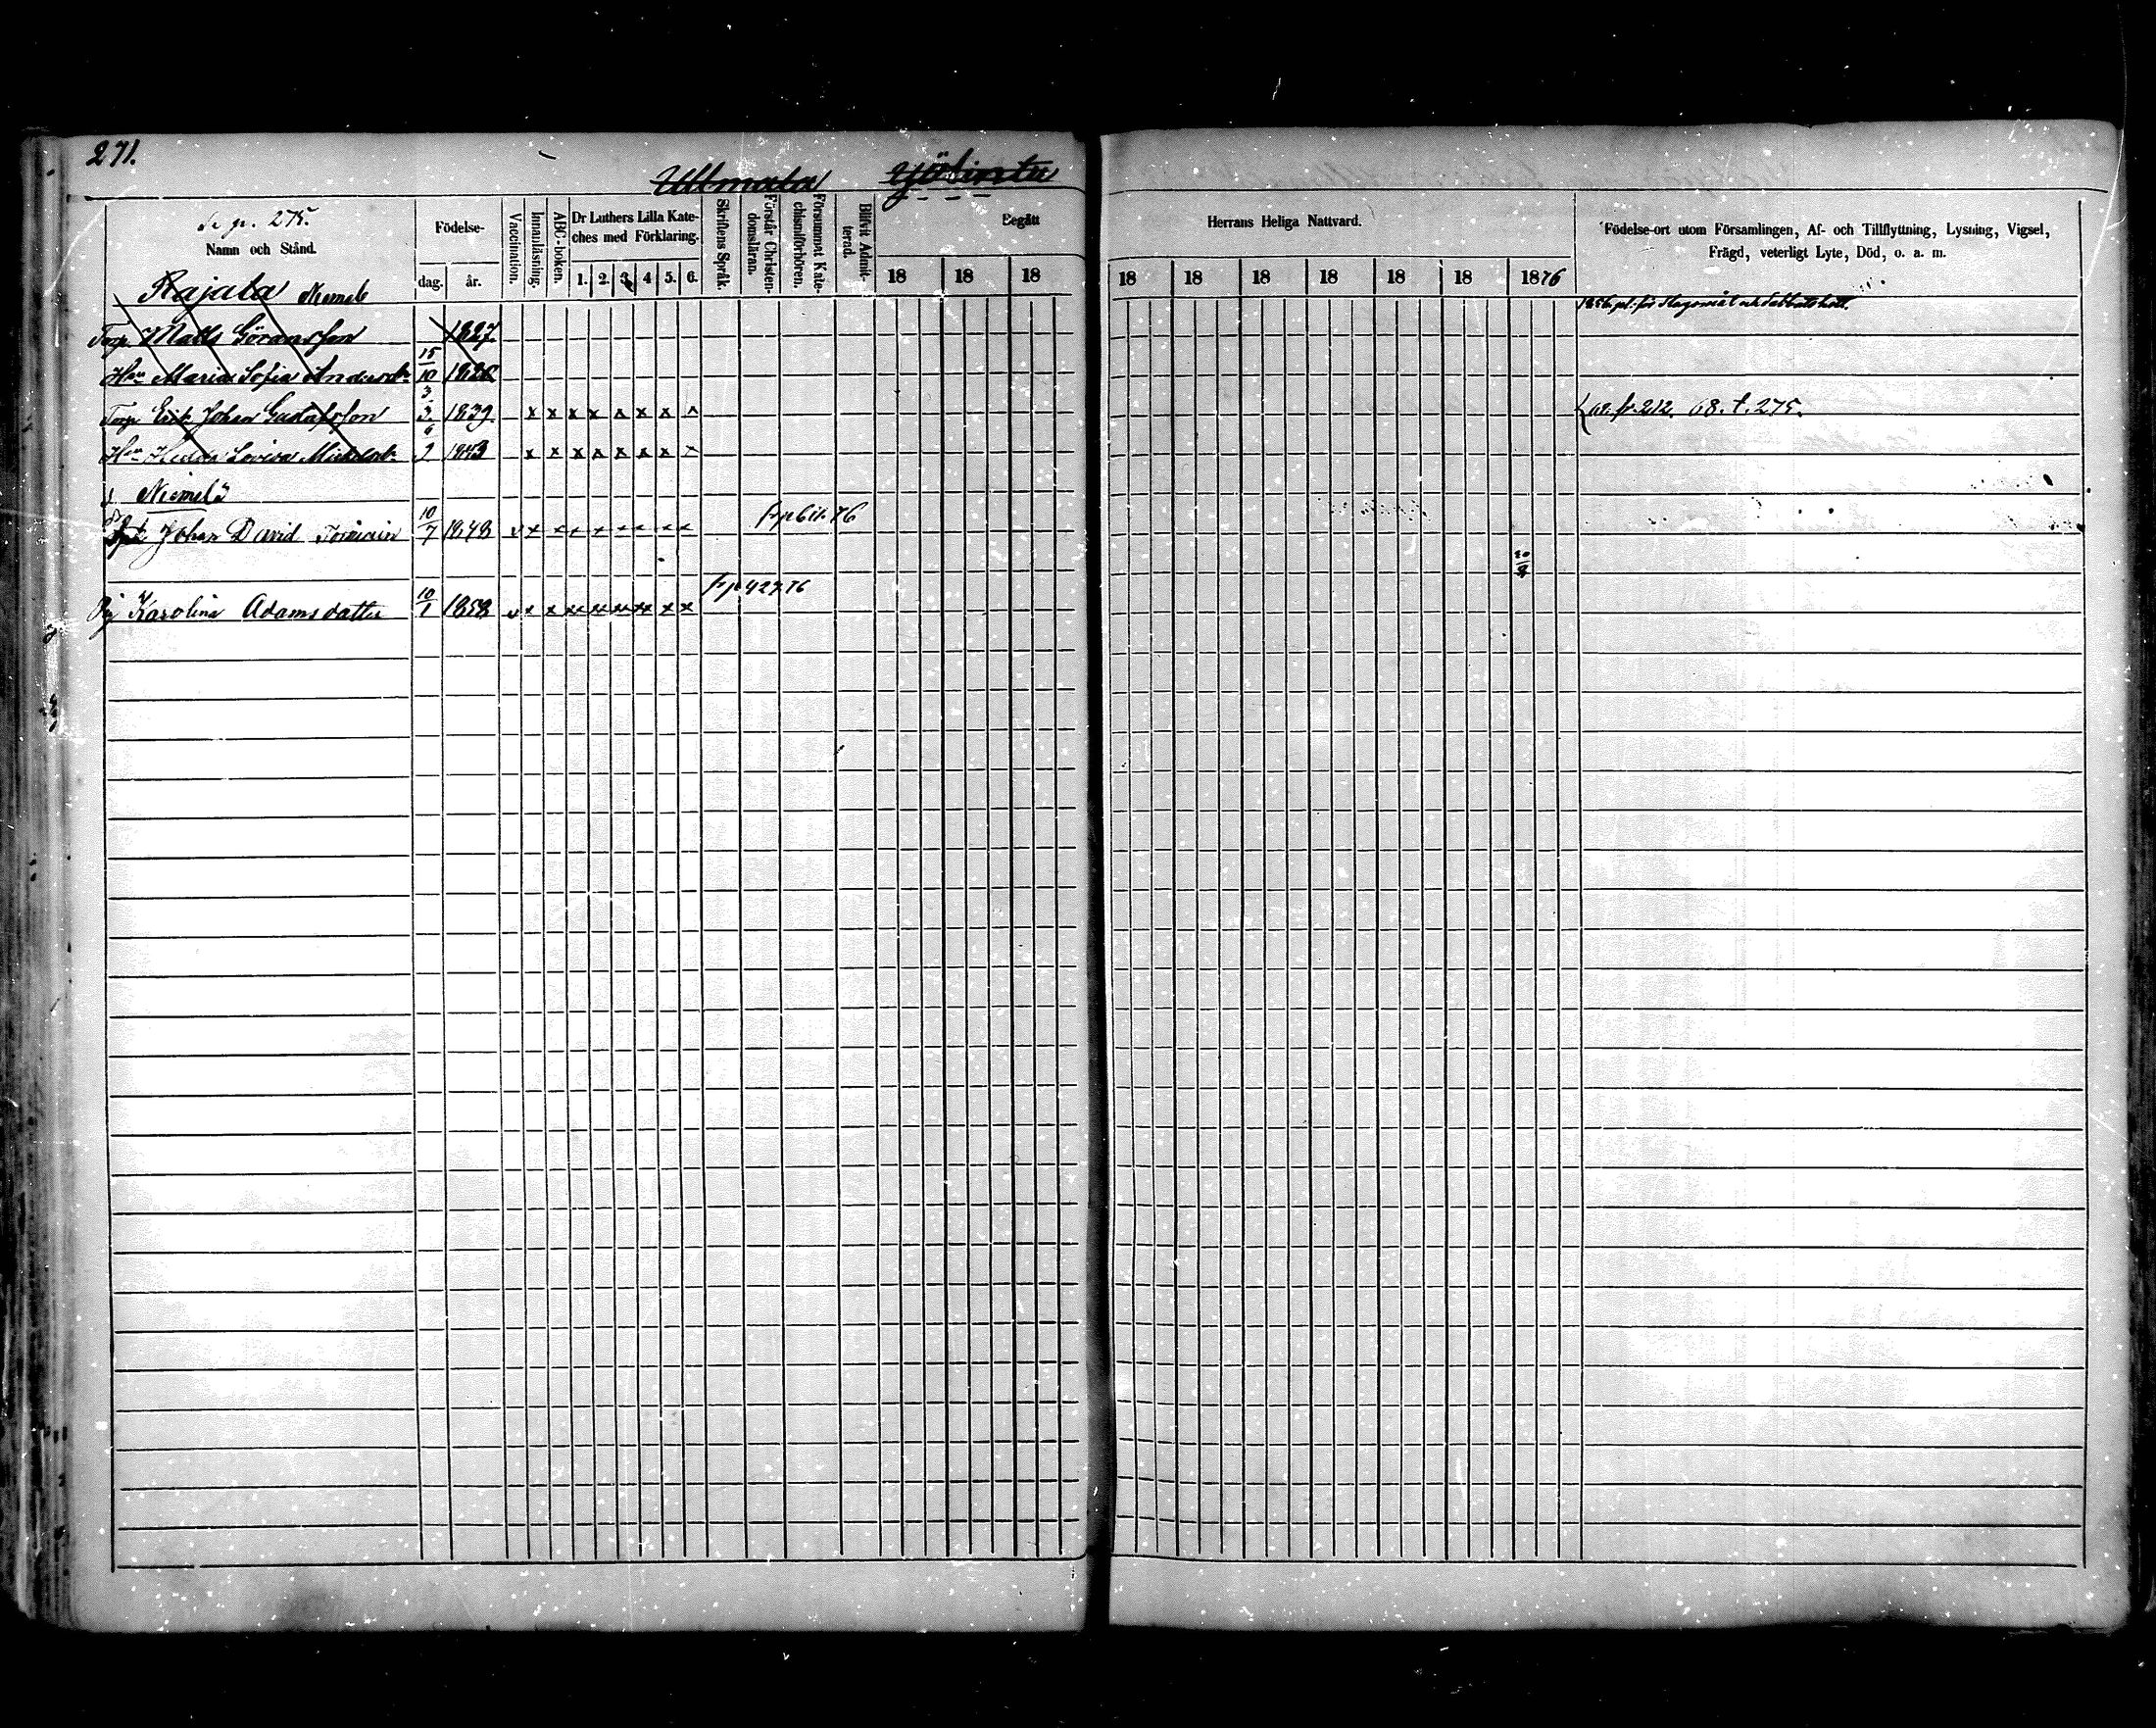 271.
Ullmala
se p. 275.
Namn och Stånd.
Födelse-
dag. år.
Vaccination.
Innanläsning.
ABC-boken.
Dr Luthers Lilla Kate-
ches med Förklaring.
1. 2. 3. 4 5. 6.
Skriftens Språk.
Förstår Christen-
domsläran.
Försummat Kate-
chismiförhören.
Blifvit Admit-
terad.
Begått
18 18 18
Herrans Heliga Nattvard.
18 18 18 18 18 18 1876
Födelse-ort utom Församlingen, Af- och Tillflyttning, Lysning, Vigsel,
Frägd, veterligt Lyte, Död, o. a. m.
Rajala
Torp. Matts Göransson 1827.
Hu Maria Sofia Andersdr 15/10 1828
Torp Erik Johan Gustafsson 3/3 1839. x x x x x x x x
68. fr. 212. 68. t. 275.
Hu Hedda Lovisa Michelsdr 6/9 1843 x x x x x x x x
Niemelä
Johan David 10/7 1848 v x x x x x x x x
20/8
Pig Karolina Adamsdatter 10/1 1858 v x x x x x x x x